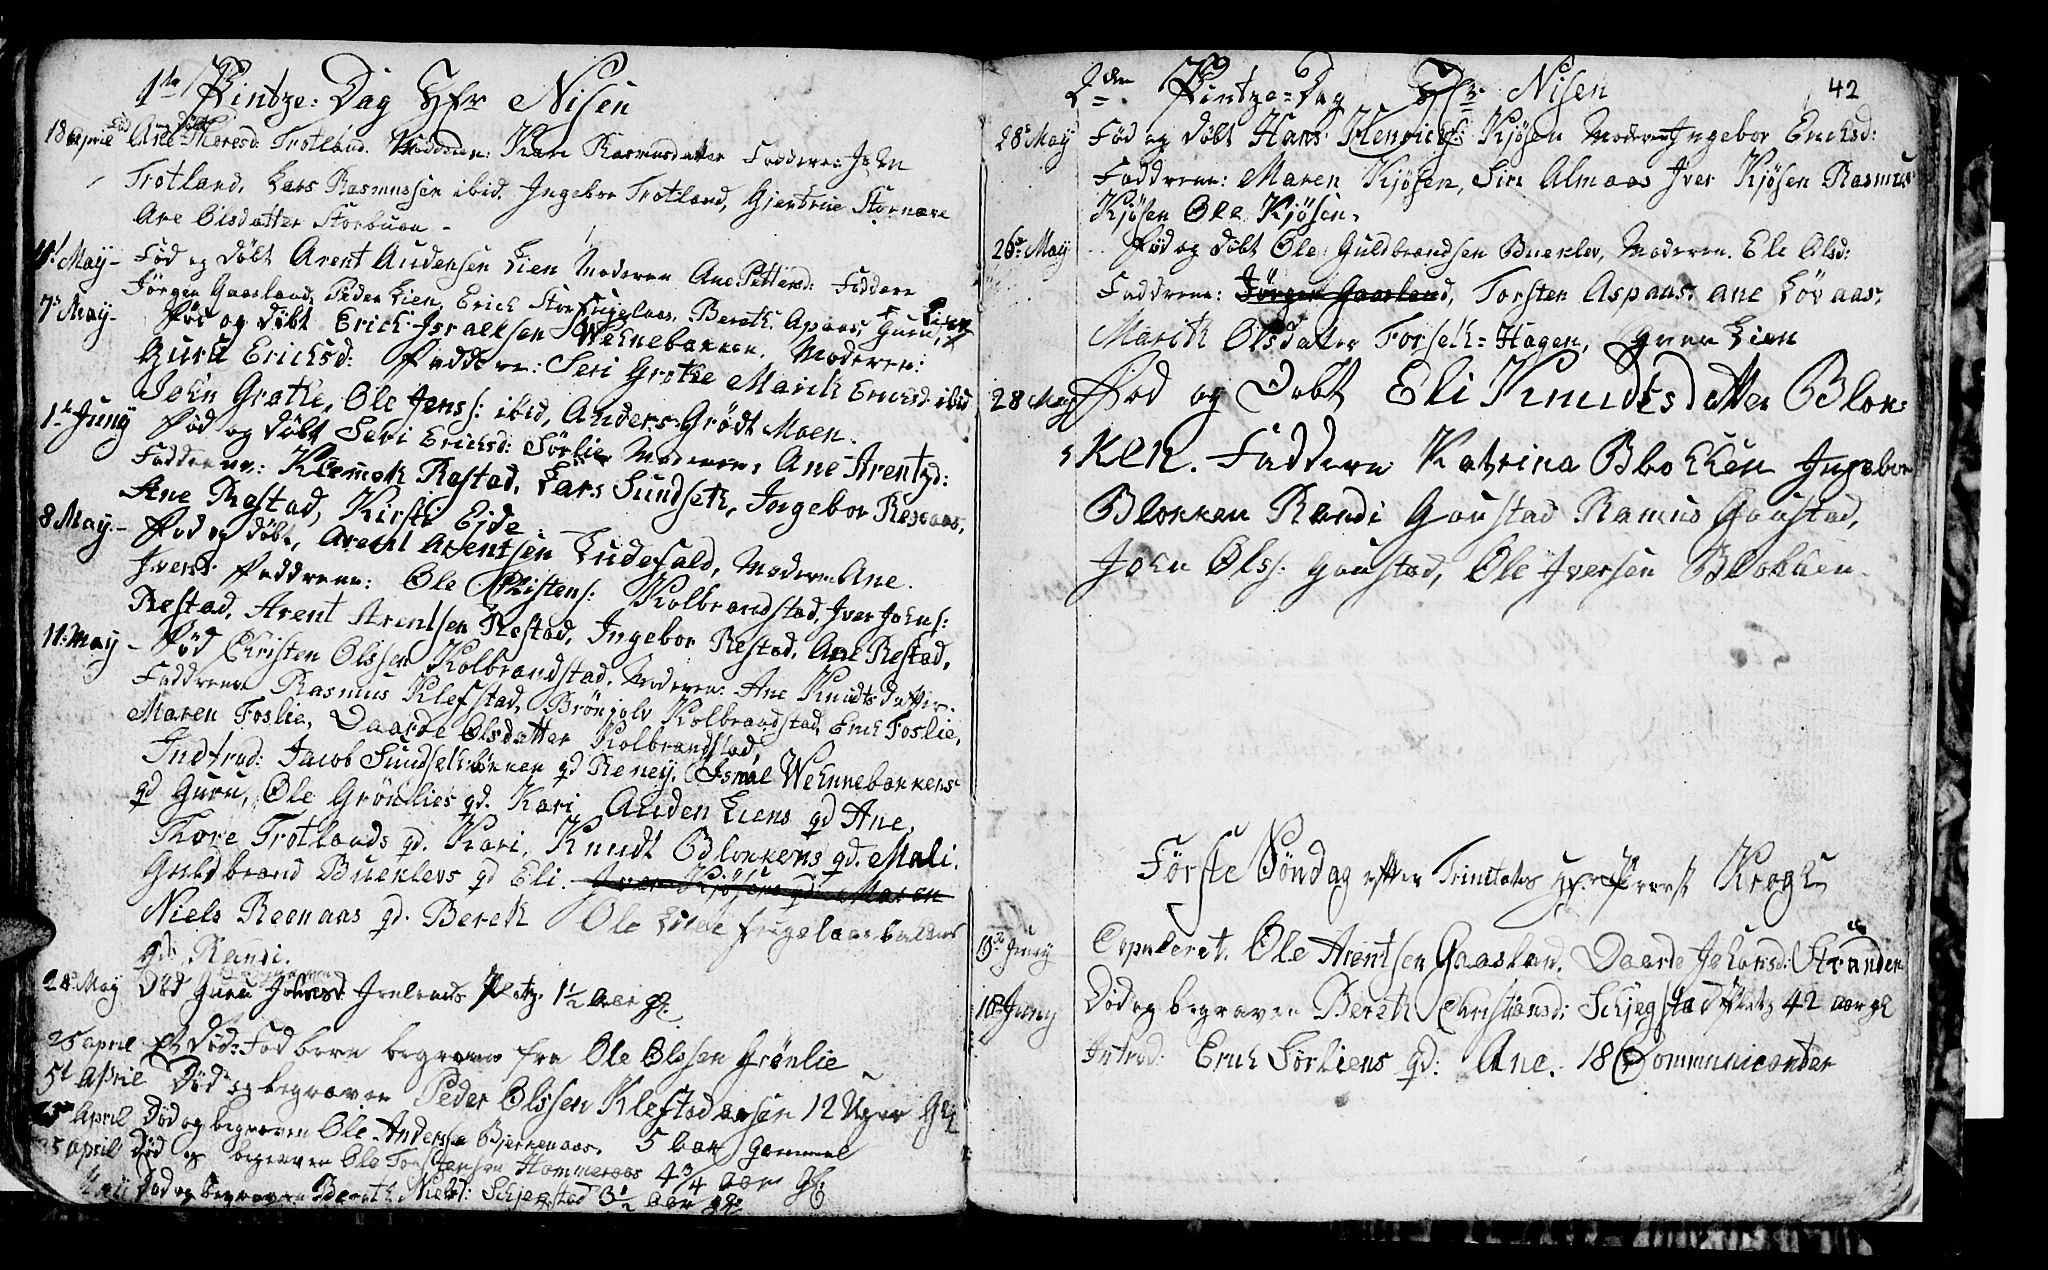 1te Pintze: Dag Hfr Nisen
18 april Fød og Døbt Ane Thoresd: Trotland. Modderen: Kari Rasmusdatter Faddere: John
Trotland, Lars Rasmussen ibid. Ingebor Trotland, Gjertrue Stornære
Ane Olsdatter Storbuen -
11t May - Fød og Døbt Arent Audensen Lien Moderen Ane Pettersd: Faddere
Jørgen Gaasland, Peder Lien, Erich Storfugelaas, Bereth Apaas, Guru Lien
7de May - Fød og Døbt Erich Israelsen Wehnebakken. Moderen:
Guru Erichsd: Faddere: Seri Grøthe Marith Erichsd: ibid
John Grothe, Ole Jenss: ibid, Anders Grødt Moen.
1te Juny Fød og Døbt Seri Erichsd: Sørlie Moderen: Ane Arentzd:
Fadderne: Klemeth Rostad, Lars Sundseth, Ingebor Reenaas,
Ane Rostad, Kirsti Eide
8 May - Fød og Døbt, Arent Arentsen Ludefald, Moderen Ane
Ivers: Faddrene: Ole Christens: Kolbrandstad, Iver Johns:
Restad, Arent Arentsen Restad, Ingebor Restad, Ane Restad,
11. May - Fød Christen Olssen Kolbrandstad. Moderen: Ane Knudtsdatter.
Faddrene Rasmus Klefstad, Brønjolv Kolbrandstad, Erich Foslie,
Maren Foslie, Daarde Olsdatter Kolbrandstad,
Indtrod: Jacob Sundsethbakken qd Reney, Ismal Wehnnebakkens
qd Guru, Ole Grønlies qd. Kari Auden Liens qd Ane,
Thore Trotlands qd. Kari, Knudt Blokkens qd. Mali.
Guldbrand Buenlevs qd Eli. Iver Kjøsens qd: Maren
Niels Reenaas qd. Bereth Ole Lille fugelaasbakken
qd: Randi.
24de May Død Guru Johnsd: Irelands Platz 1 1/2 Aar gl:
25 april Et Død: Fød barn begraven fra Ole Olssen Grønlie
5t April Død og begraven Peder Olssen Klestad 12 Uger Gl:
April Død og begraven Ole Anderssen Bjerkenaas. 5 Aar Gammel
25 april Død og begraven Ole Torstensen Hammeraas 4 3/4 aar Gl:
May Død og begraven Bereth Nielsd: Schjegstad 3 1/2 aar gl:
2den Pintze=Dag Hfr: Nisen 42
28de May Fød og Døbt Hans Henrichs: Kjøsen Moderen Ingebor Erichsd:
Faddrene: Maren Kjøsen, Siri Almaas Iver Kjøsen Rasmus
Kjøsen Ole Kjøsen.
26de May Fød og Døbt Ole Guldbrandsen Buenlev, Moderen. Eli Olsd:
Faddrene: Jørgen Gaasland, Torsten Aspaas, ane Løvaas,
Marith Olsdatter Forseth=Hagen, Guru Lien
28 May Fød og Døbt Eli Knudtsdatter Blok=
ken. Faddere Katrina Blokken Ingebor
Blokken Randi Goustad Ramus Goustad,
John Olss: Goustad, Ole Iversen Blokken
Første Søndag efter Trinitatis Hfr. Provst Krogh
19de Juny Copuleret. Ole Arentsen Gaasland. Daarde Johansd: Stranden
10de Juny Død og begraven Bereth Christiansd: Schjegstad Platz 42 aar gl
Introd: Erich Sørliens qd: Ane. 18 Communicanter